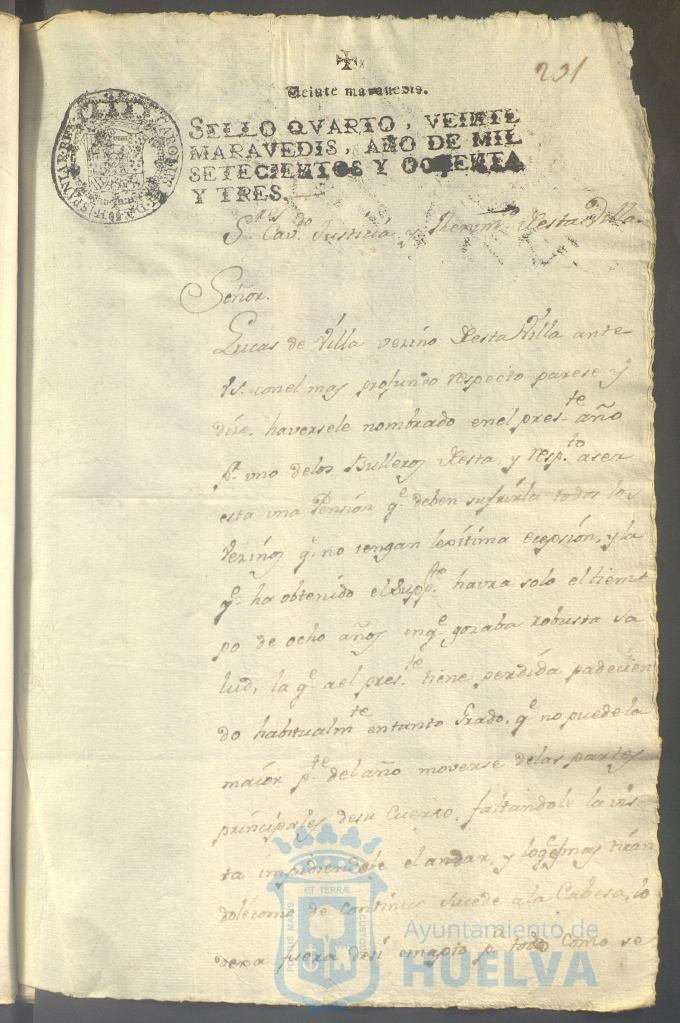 231
Veinte marauedis.
SELLO QVARTO, VEINTE
MARAVEDIS, AÑO DE MIL
SETECIENTOS Y OCHENTA
Y TRES.
Justicia y Desta Villa
Señor.
Lucas de Villa veziño Desta Villa ante
VS. con el mas profundo respecto parese y
dize. haversele nombrado en el pres.te año
p.r uno delos Bulleros Desta y resp.to aser
esta una Pensión q.e deben sufrirla todos los
veziños q.e no tengan lexítima ecepsión, y la
q.e ha obtenido el Supp.te havra solo el tiem
po de ocho años en q.e gozaba robusta sa
lud, la q.e a el pres.te tiene perdída padecien
do habitualm.te en tanto Grado, q.e no puede la
maíor p.te del año moverse delas partes
príncipales desu Cuerpo, faltandole la vis
ta impidiendole el andar, y loq.e mas
dole como de contínuo sucede a la Cabesa, lo
dexa fuera desí enapto p.a todo Como se
CAROLUS
Ayuntamiento de
HUELVA
PORTUS MARIS
ET TERRÆ
CUSTODIA